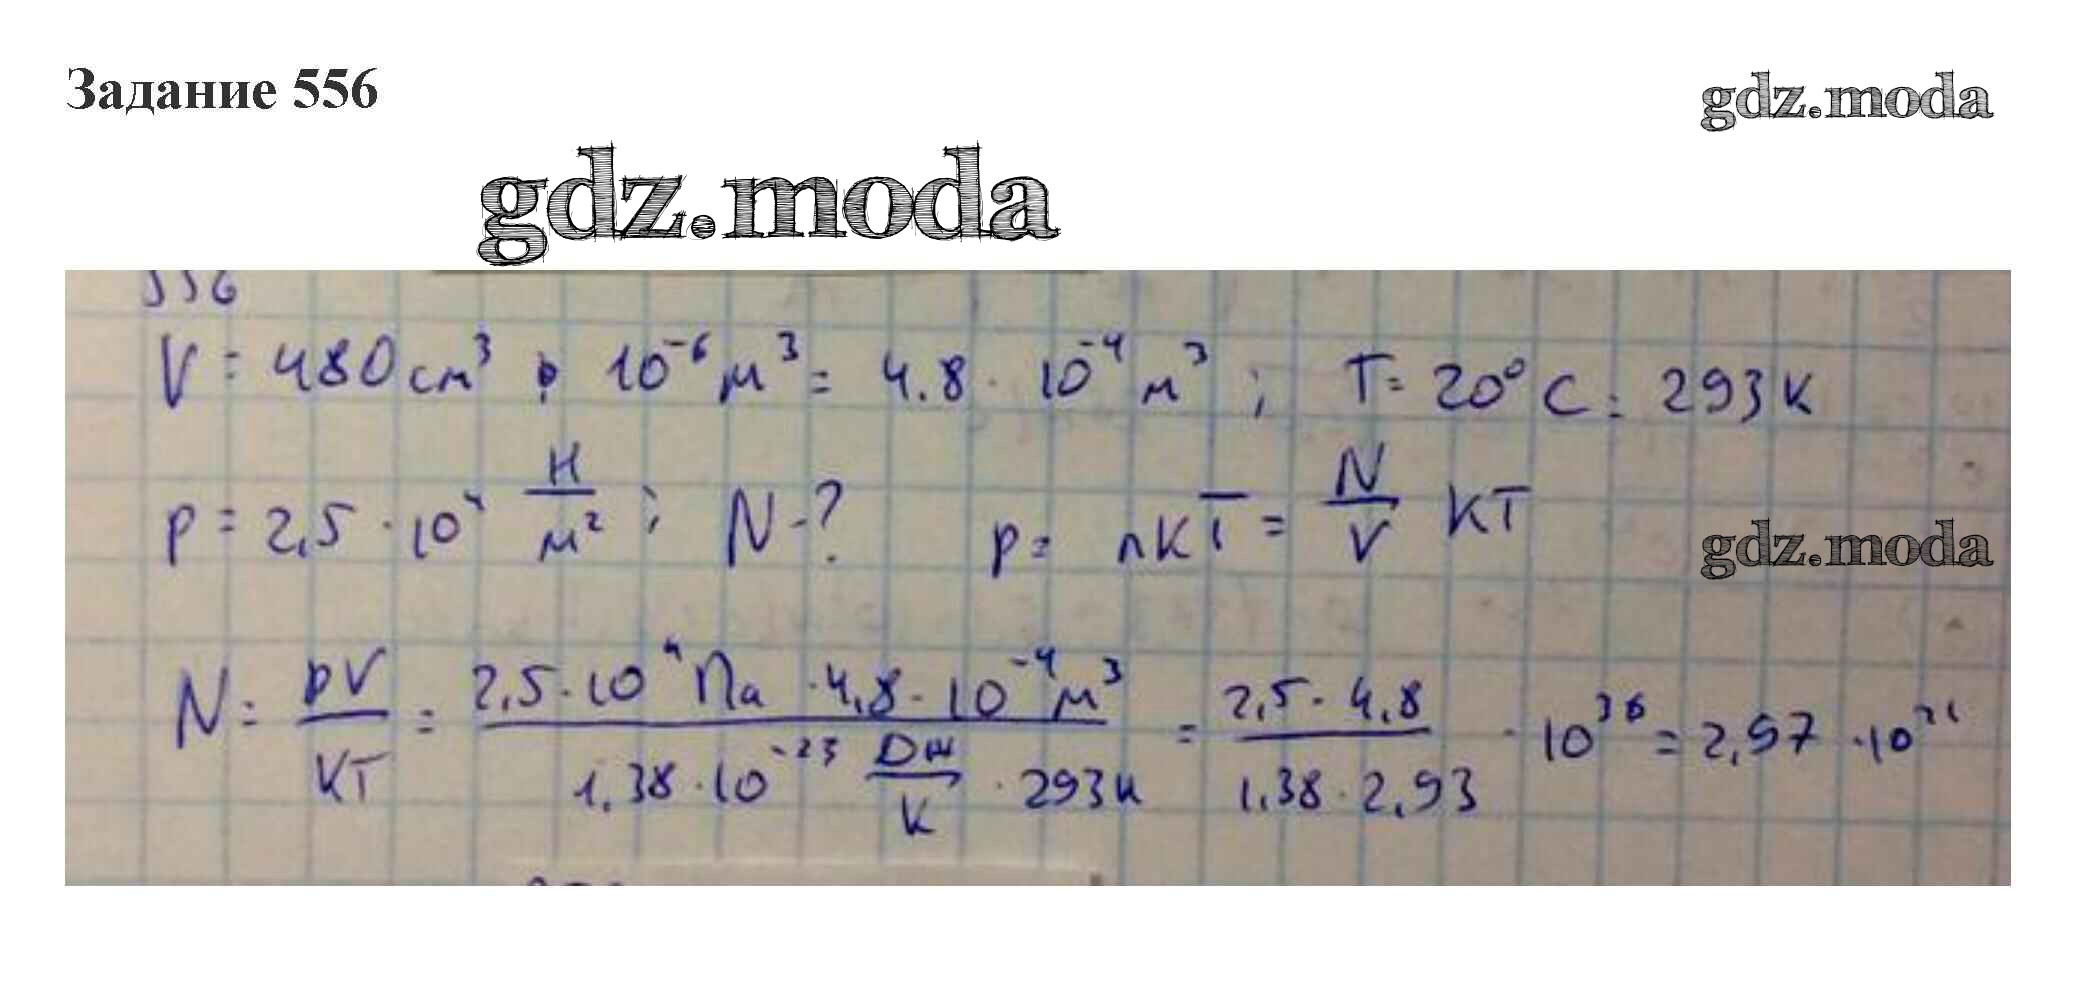 Задание 556
gdz.moda
gdz.moda
556
V = 480 см³ · 10⁻⁶ м³ = 4.8 · 10⁻⁴ м³ ; T = 20° C = 293 K
p = 2,5 · 10⁴ Н/м² ; N - ? p = nKT = N/V KT
gdz.moda
N = pV/KT = 2,5 · 10⁴ Па · 4,8 · 10⁻⁴ м³ / 1,38 · 10⁻²³ Дж/K · 293K = 2,5 · 4,8 / 1,38 · 2,93 · 10³⁶ = 2,97 · 10²¹